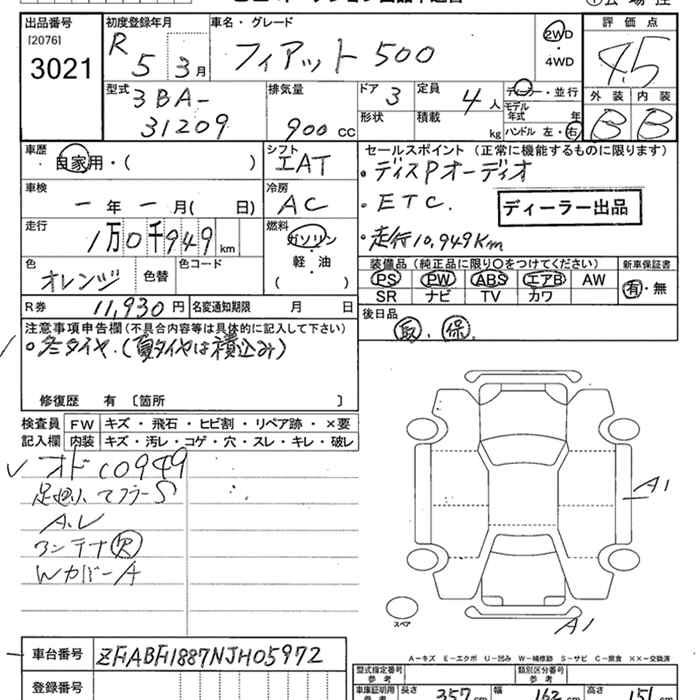 出品番号
[2076]
3021
初度登録年月
R 5 3月
車名・グレード
フィアット 500
2WD
・
4WD
評価点
4.5
型式
3BA-
31209
排気量
900 cc
ドア 3
定員 4 人
形状
積載 kg
ディーラー・並行
モデル年式 年
ハンドル 左・右
外装 内装
B B
車歴
自家用・( )
シフト
IAT
セールスポイント (正常に機能するものに限ります)
・ディスPオーディオ
・ETC.
・走行10,949Km
ディーラー出品
車検
ー年ー月( 日)
冷房
AC
走行
1万0千949km
燃料
ガソリン
軽・油
( )
色
オレンジ
色替
色コード
装備品 (純正品に限り○をつけてください)
PS PW ABS エアB AW
SR ナビ TV カワ
新車保証書
有・無
R券 11,930円
名変通知期限 月 日
後日品
取. 保.
注意事項申告欄(不具合内容等は具体的に記入して下さい)
・冬タイヤ.(夏タイヤは積込み)
修復歴 有 [箇所 ]
検査員
記入欄
FW キズ・飛石・ヒビ割・リペア跡・×要
内装 キズ・汚レ・コゲ・穴・スレ・キレ・破レ
オドC0949
A.U
アンテナ欠
WカバーA
A1
A1
スペア
車台番号 ZFABF1887NJH05972
登録番号
A-キズ E-エクボ U-凹み W-補修跡 S-サビ C-腐食 ××-交換済
型式指定番号
参考
類別区分番号
参考
車庫証明用
参考
長さ 357 cm
幅 162 cm
高さ 151 cm